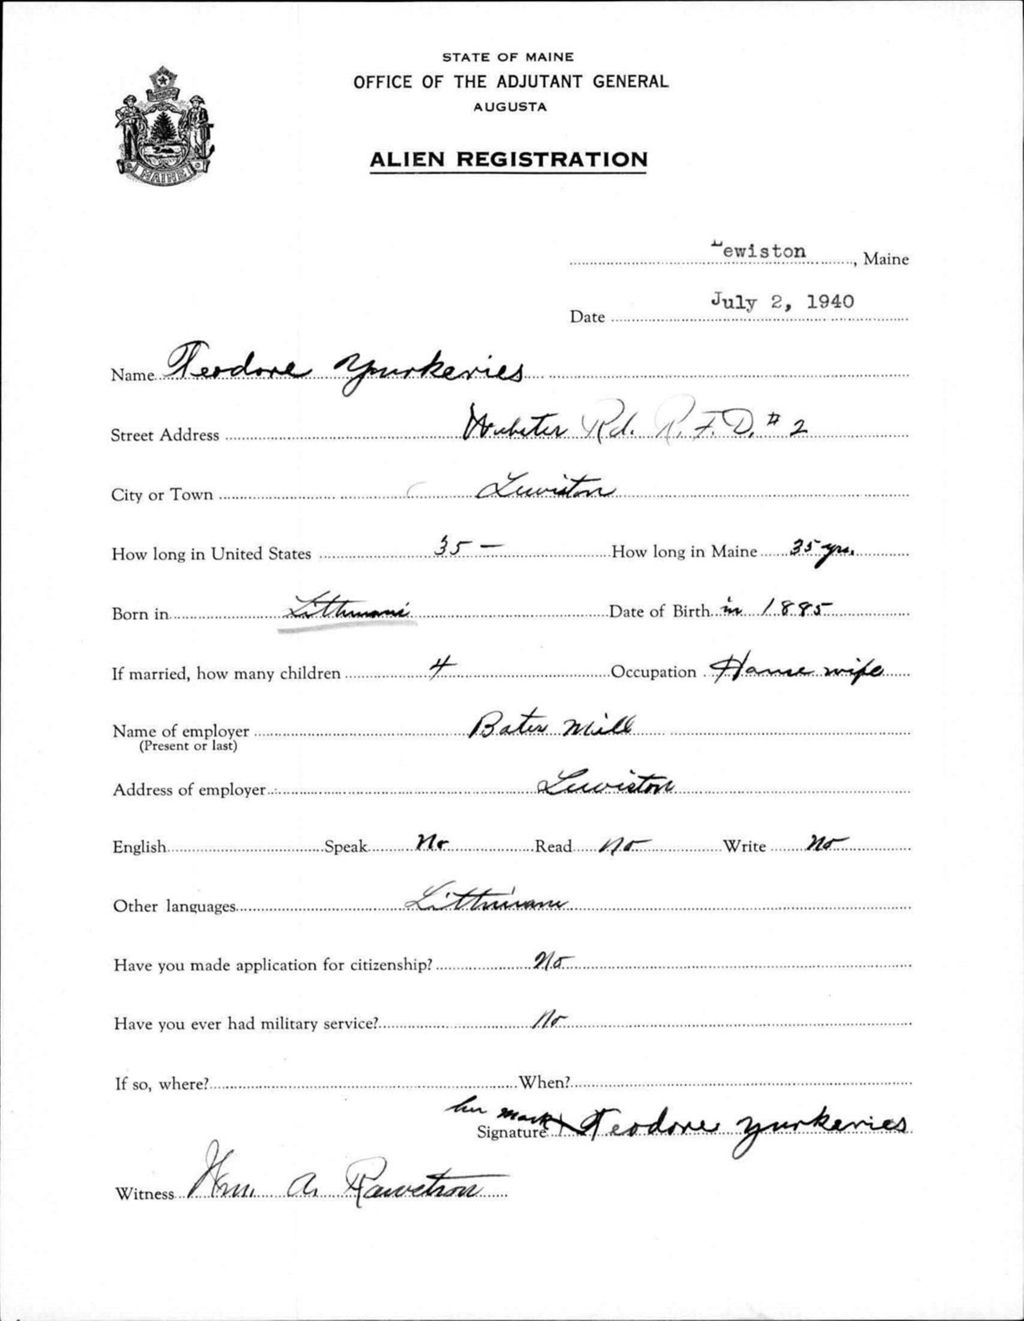 STATE OF MAINE
OFFICE OF THE ADJUTANT GENERAL
AUGUSTA
ALIEN REGISTRATION
MAINE
Lewiston, Maine
Date July 2, 1940
Name Teodore Yurkevies
Street Address Webster Rd. R.F.D. # 2
City or Town Lewiston
How long in United States 35 — How long in Maine 35 yrs.
Born in Date of Birth in 1885
If married, how many children 4 Occupation House wife
Name of employer Bates Mill
(Present or last)
Address of employer Lewiston
English Speak No Read No Write No
Other languages
Have you made application for citizenship? No
Have you ever had military service? No
If so, where? When?
her mark
Signature X Teodore Yurkevies
Witness Wm. A.